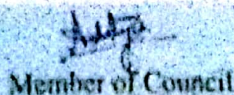 Member of Council